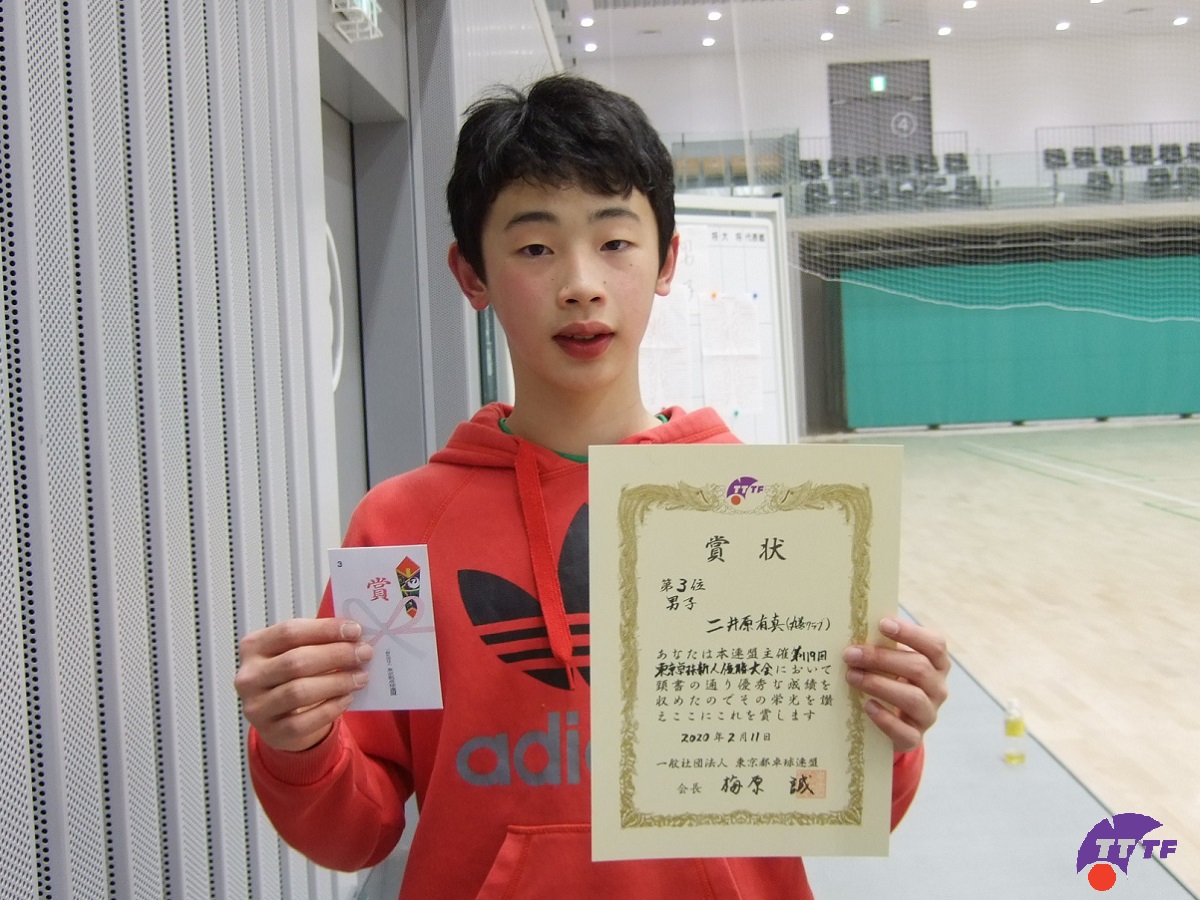 ④
賞
3
adi
TTTF
賞状
第3位
男子
二井原有真(
あなたは本連盟主催第119回
東京卓球新人優勝大会において
頭書の通り優秀な成績を
収めたのでその栄光を讃
えここにこれを賞します
2020年2月11日
一般社団法人 東京都卓球連盟
会長 梅原 誠
TTTF